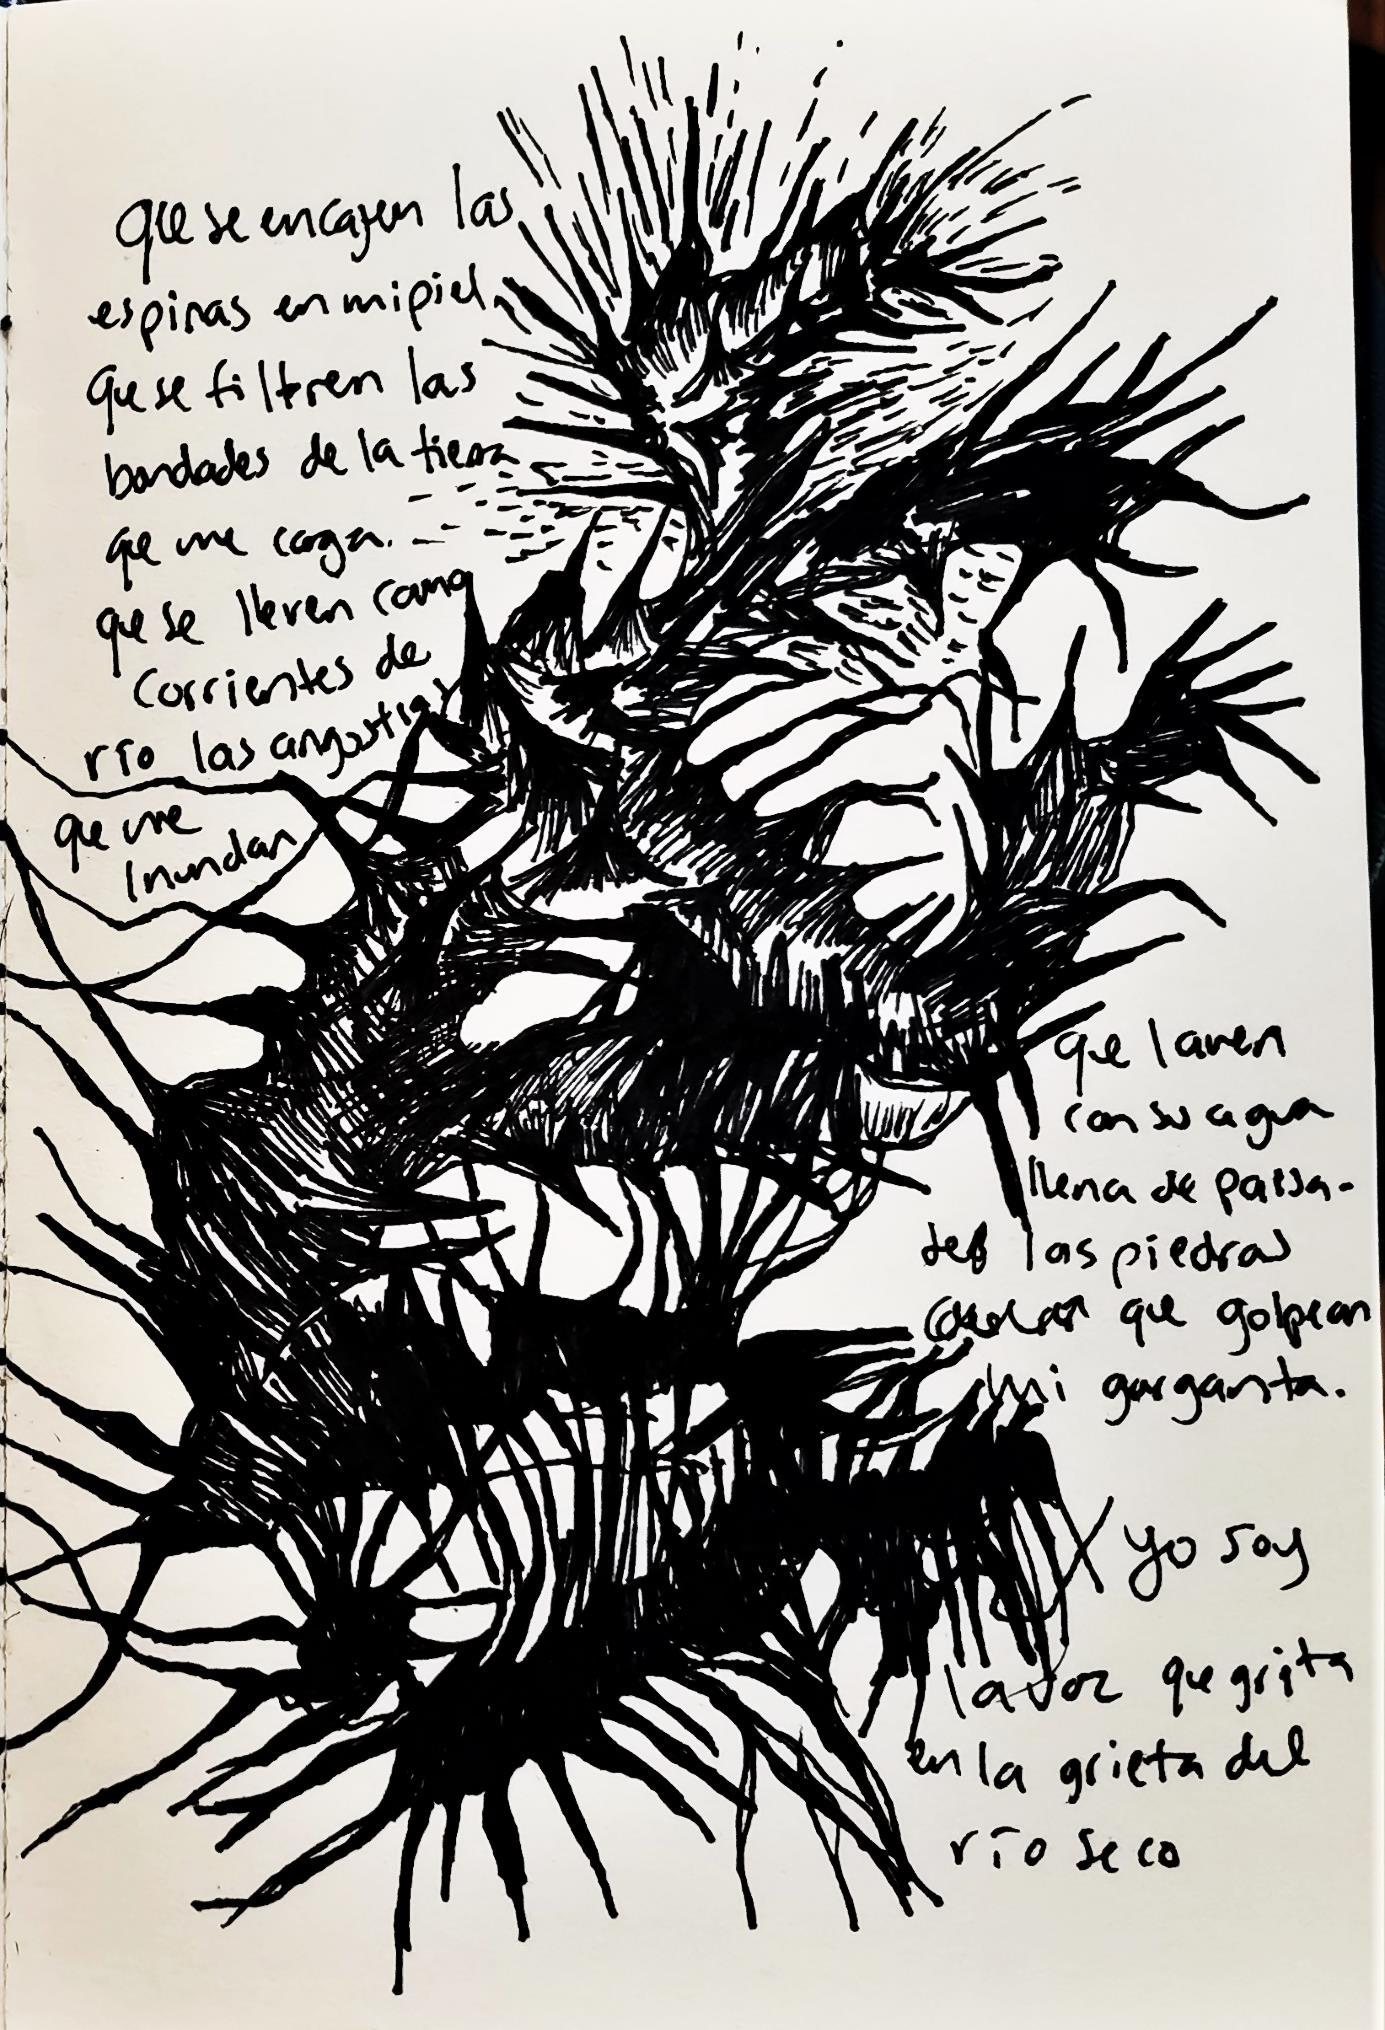 que se encajen las
espinas en mi piel,
que se filtren las
bondades de la tierra
que me carga.
que se lleven como
corrientes de
río las angustias
que me
inundan
que laven
con su agua
llena de
las piedras
que golpean
mi garganta.
Yo soy
la voz que grita
en la grieta del
río seco